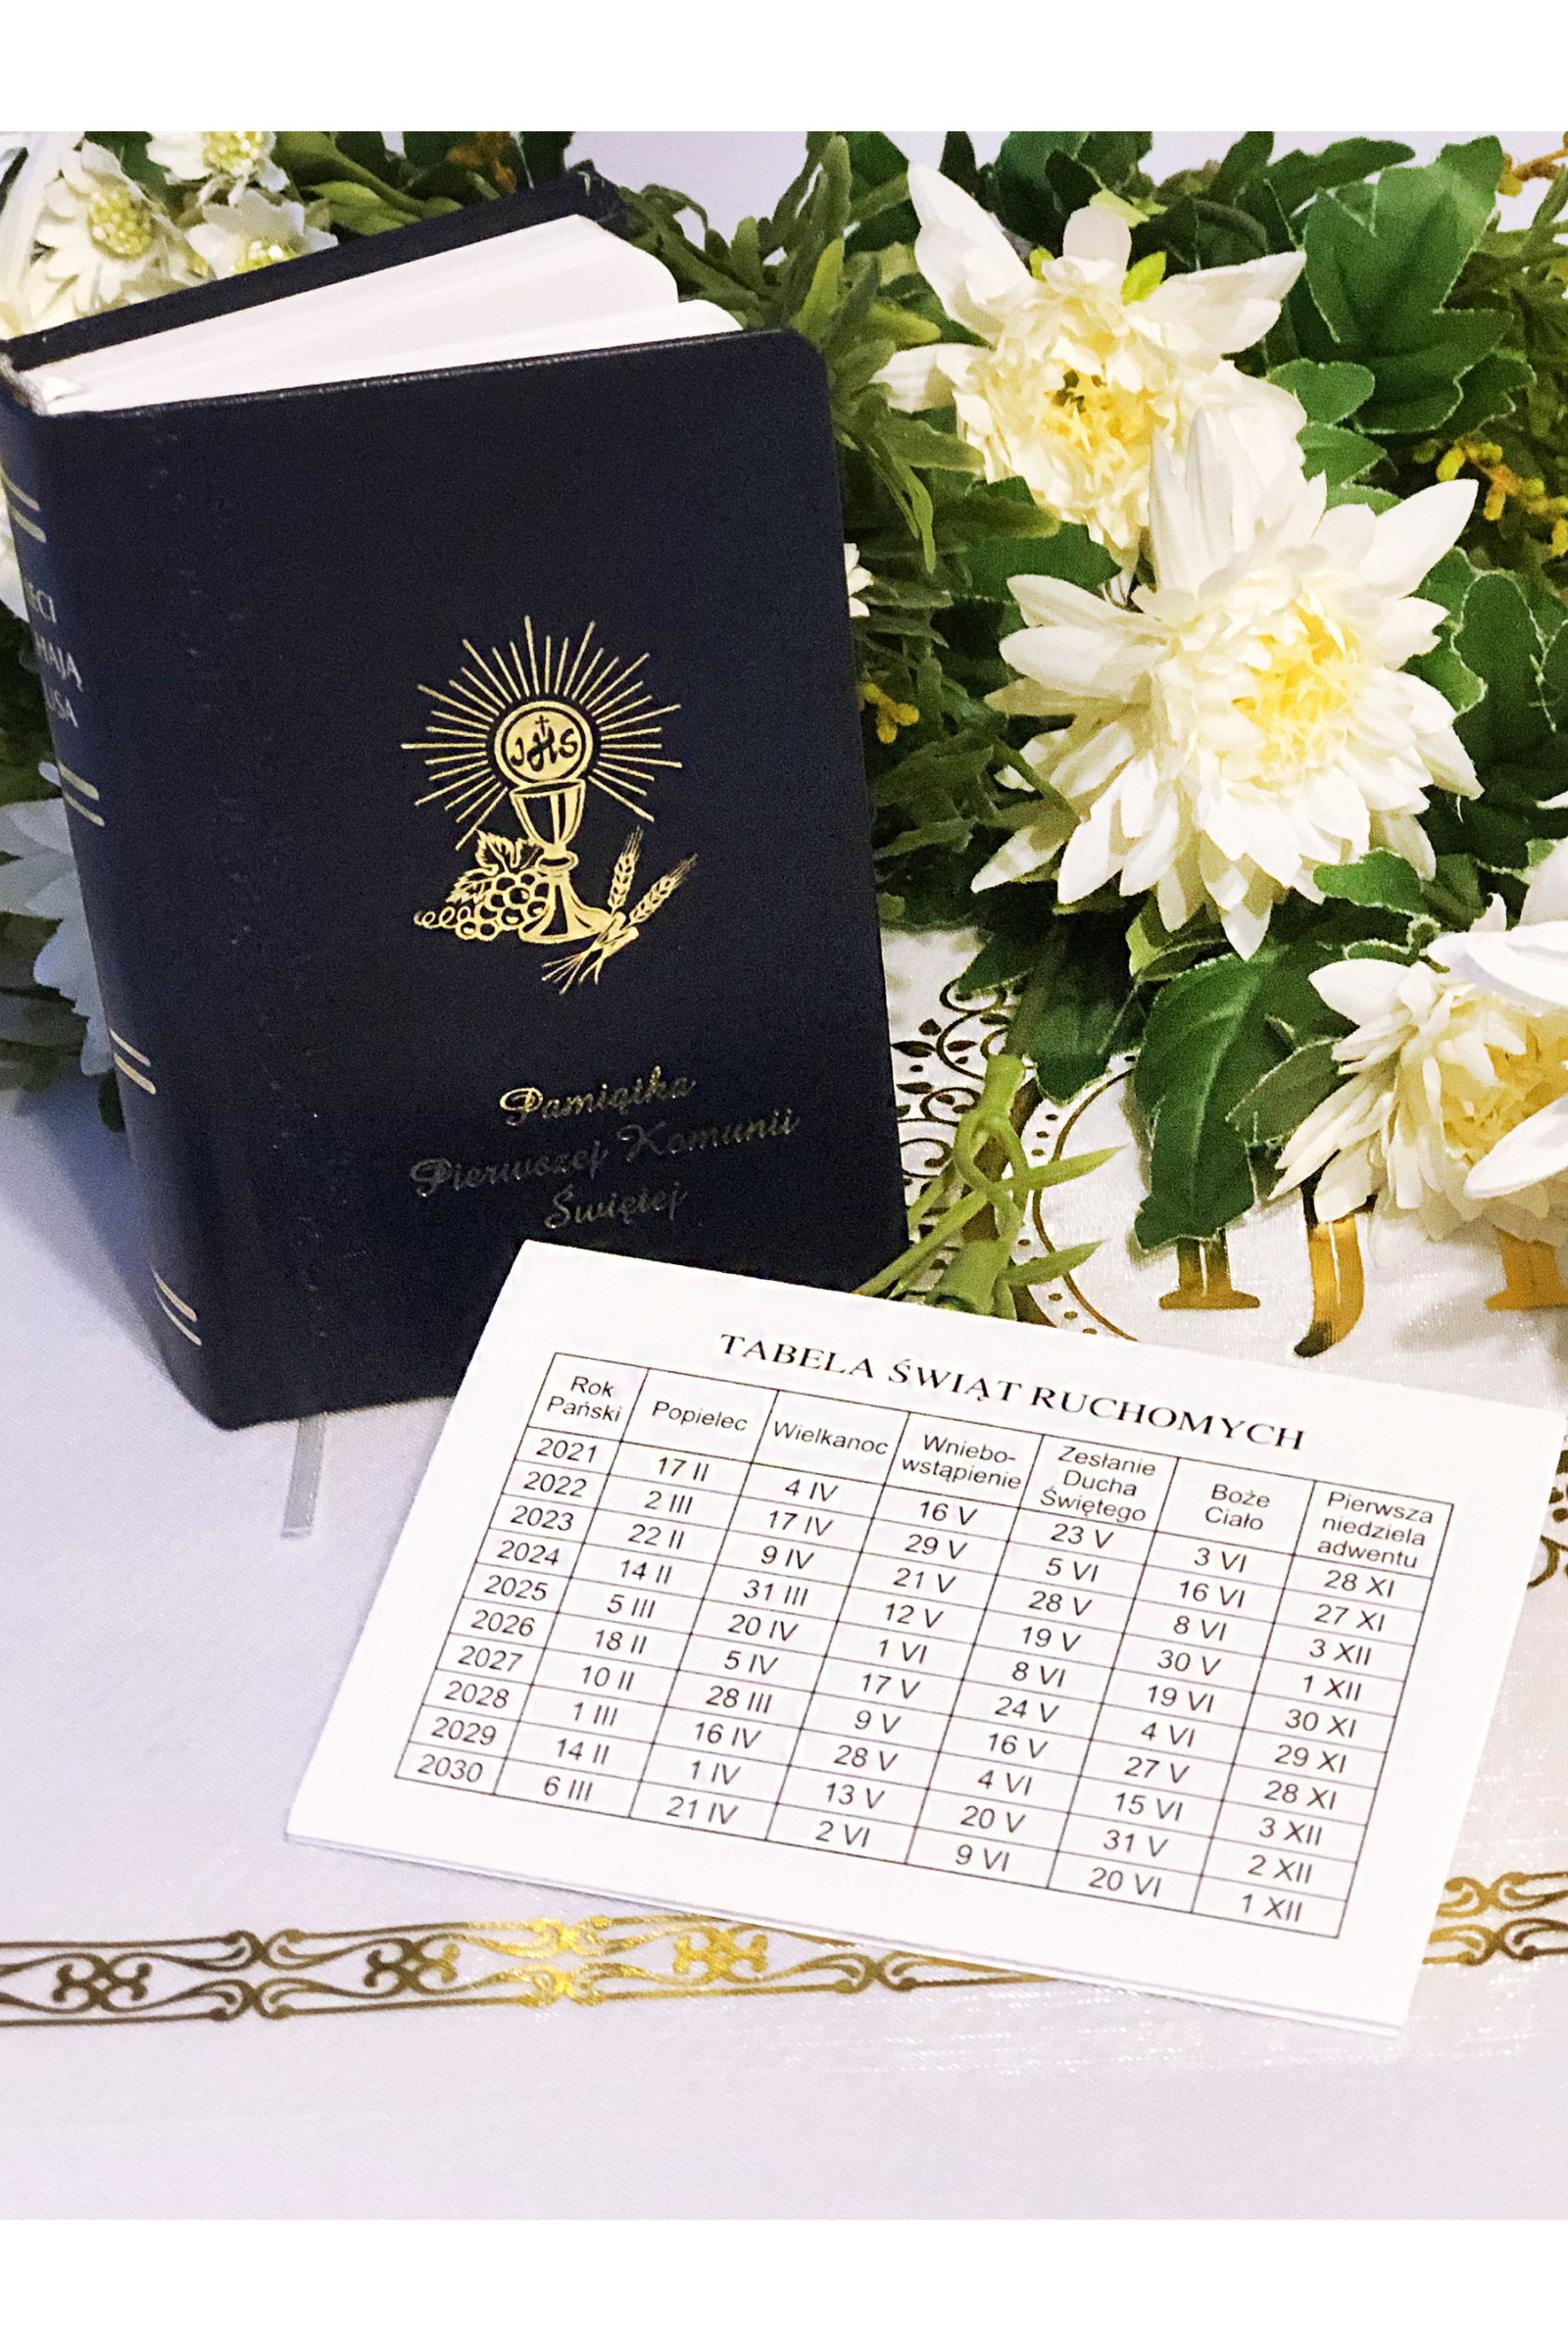 JHS
Pamiątka
Pierwszej Komunii
Świętej
TABELA ŚWIĄT RUCHOMYCH
Rok Pański Popielec Wielkanoc Wniebo-wstąpienie Zesłanie Ducha Świętego Boże Ciało Pierwsza niedziela adwentu
2021 17 II 4 IV 16 V 23 V 3 VI 28 XI
2022 2 III 17 IV 29 V 5 VI 16 VI 27 XI
2023 22 II 9 IV 21 V 28 V 8 VI 3 XII
2024 14 II 31 III 12 V 19 V 30 V 1 XII
2025 5 III 20 IV 1 VI 8 VI 19 VI 30 XI
2026 18 II 5 IV 17 V 24 V 4 VI 29 XI
2027 10 II 28 III 9 V 16 V 27 V 28 XI
2028 1 III 16 IV 28 V 4 VI 15 VI 3 XII
2029 14 II 1 IV 13 V 20 V 31 V 2 XII
2030 6 III 21 IV 2 VI 9 VI 20 VI 1 XII